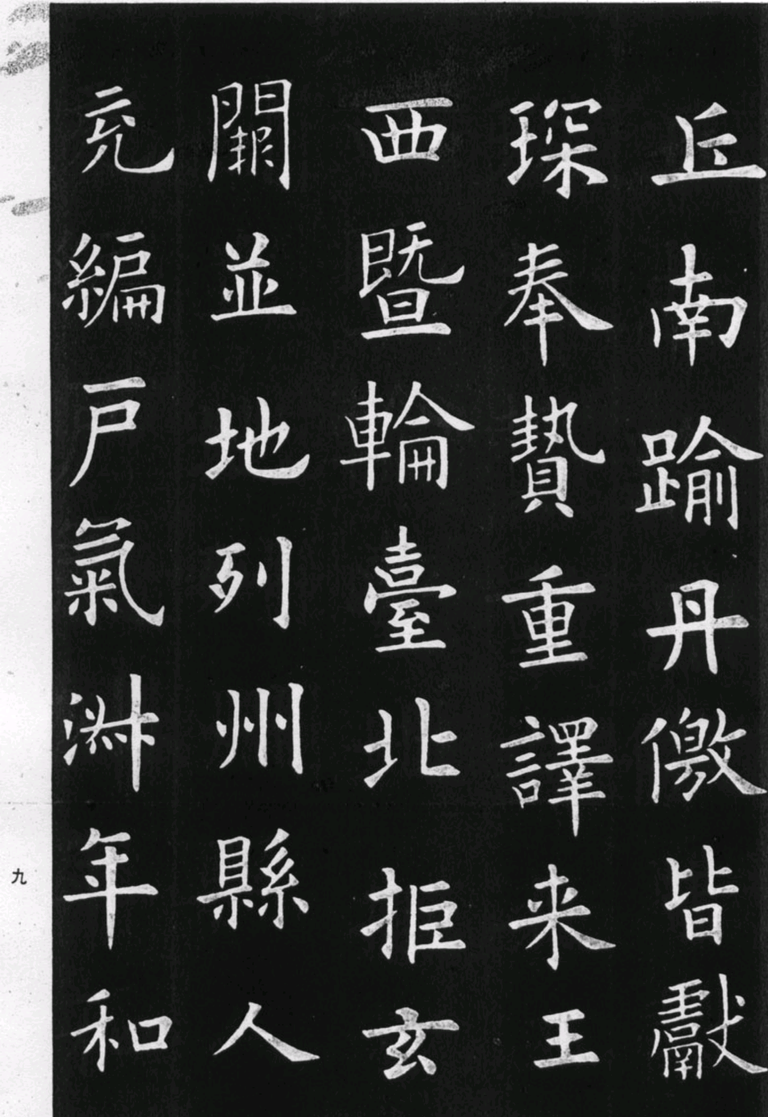 丘南踰丹儌皆獻
琛奉贄重譯来王
西暨輪臺北拒玄
闕並地列州縣人
充編戶氣淋年和
九